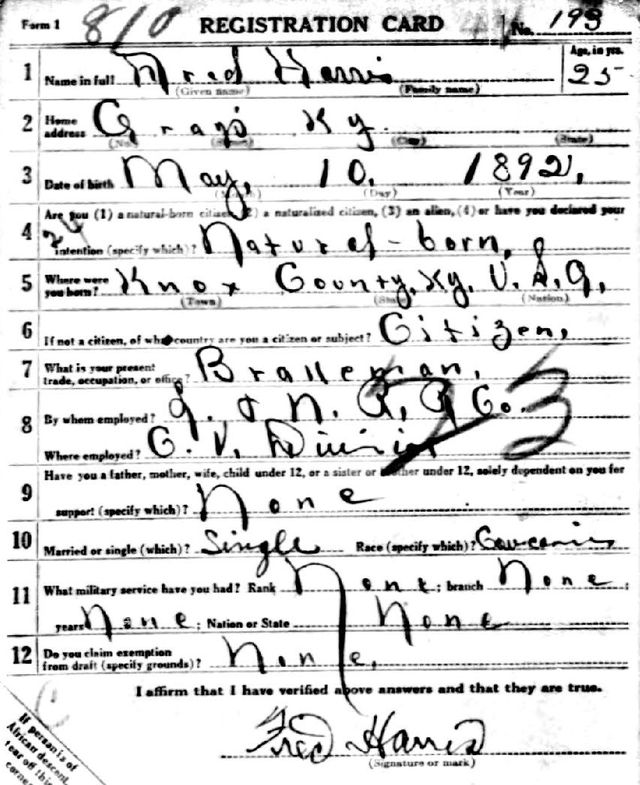 Form 1 810 REGISTRATION CARD No. 193
1 Name in full Fred Harris Age, in yrs. 25
(Given name) (Family name)
2 Home address Grays Ky.
(No.) (Street) (City) (State)
3 Date of birth May, 10, 1892,
(Month) (Day) (Year)
Are you (1) a natural-born citizen, (2) a naturalized citizen, (3) an alien, (4) or have you declared your
4 intention (specify which)? Natural-born,
5 Where were you born? Knox County, Ky, U.S.A,
(Town) (State) (Nation)
6 If not a citizen, of what country are you a citizen or subject? Citizen,
7 What is your present trade, occupation, or office? Brakeman,
8 By whom employed? L. & N. R. R Co. 23
Where employed? C. V. Division
Have you a father, mother, wife, child under 12, or a sister or brother under 12, solely dependent on you for
9 support (specify which)? None
10 Married or single (which)? Single Race (specify which)? Caucasian
11 What military service have you had? Rank None; branch None;
years None; Nation or State None
12 Do you claim exemption from draft (specify grounds)? None,
I affirm that I have verified above answers and that they are true.
Fred Harris
(Signature or mark)
If person is of
African descent,
tear off this
corner